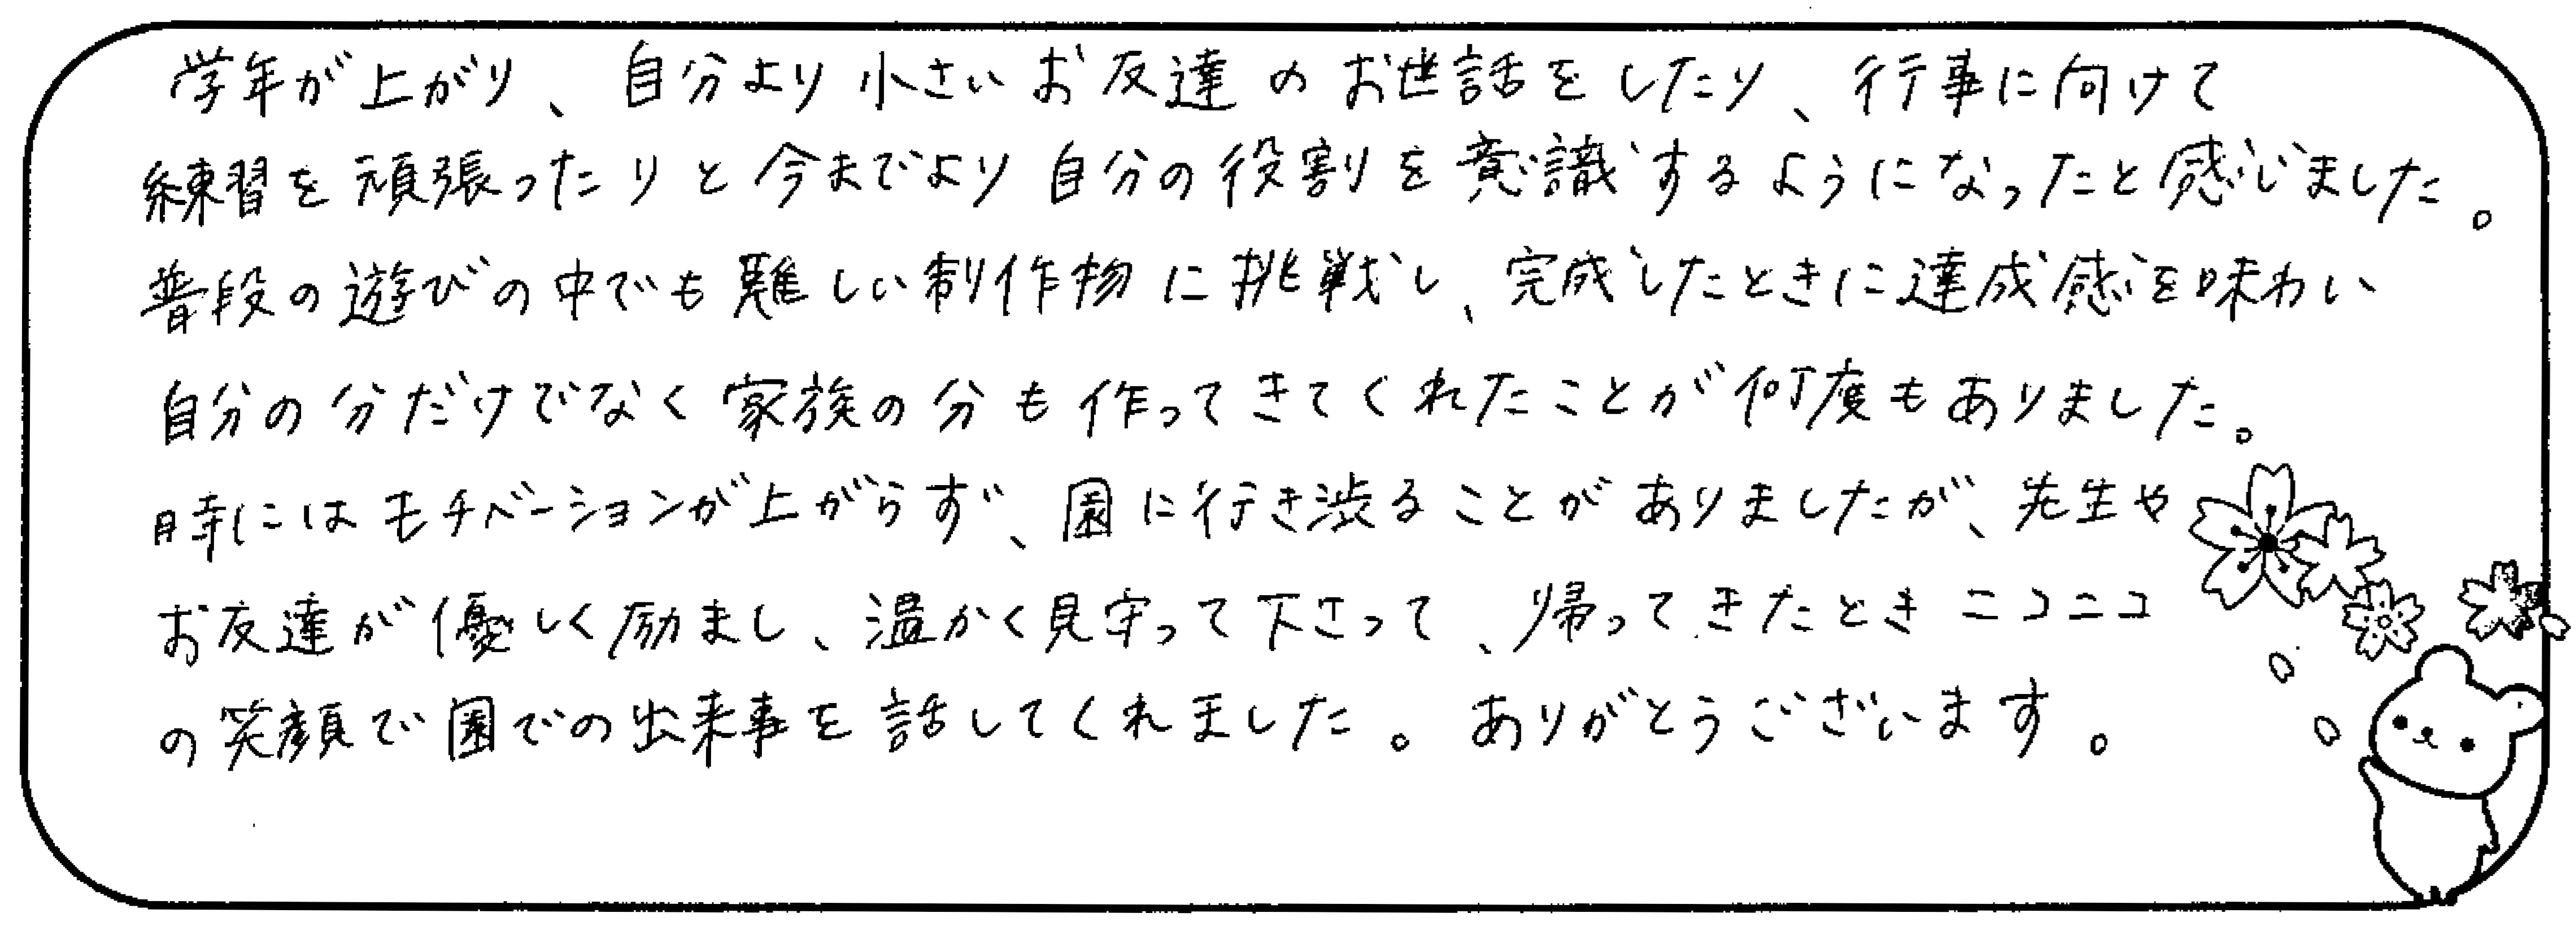 学年が上がり、自分より小さいお友達のお世話をしたり、行事に向けて
練習を頑張ったりと今までより自分の役割を意識するようになったと感じました。
普段の遊びの中でも難しい制作物に挑戦し、完成したときに達成感を味わい
自分の分だけでなく家族の分も作ってきてくれたことが何度もありました。
時にはモチベーションが上がらず、園に行き渋ることがありましたが、先生や
お友達が優しく励まし、温かく見守って下さって、帰ってきたときニコニコ
の笑顔で園での出来事を話してくれました。ありがとうございます。